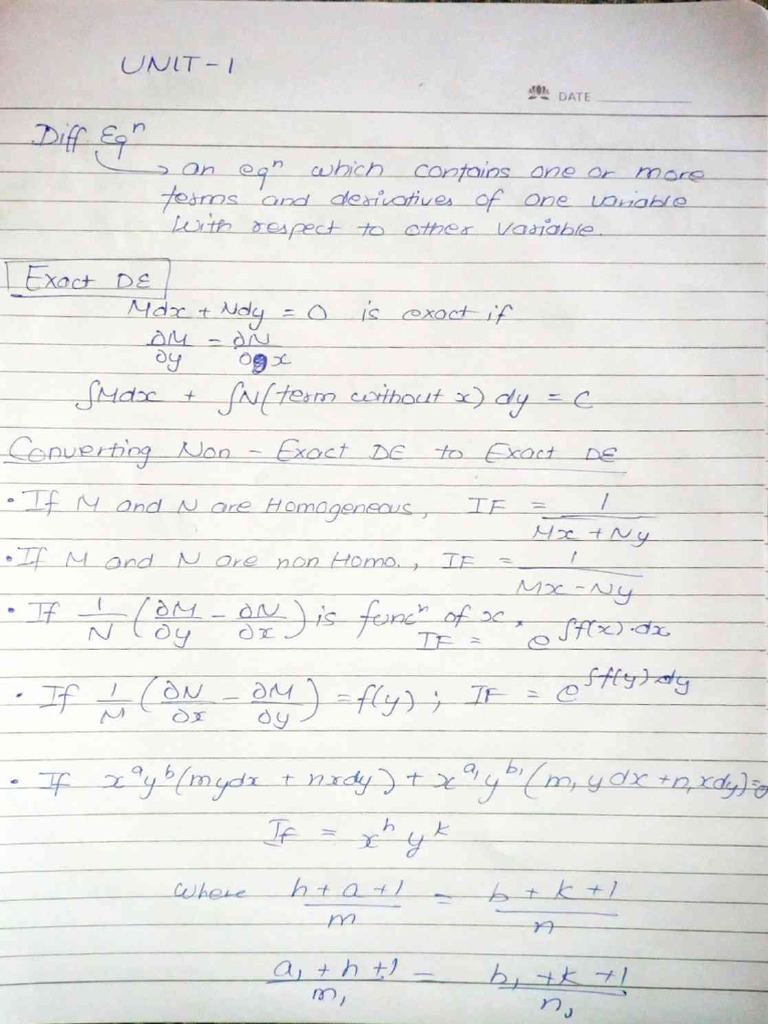 UNIT-1
DATE
Diff Eqⁿ
→ an eqⁿ which contains one or more
terms and derivatives of one variable
With respect to other variable.
Exact DE
Mdx + Ndy = 0 is exact if
∂M/∂y = ∂N/∂x
∫Mdx + ∫N(term without x) dy = C
Converting Non - Exact DE to Exact DE
• If M and N are Homogeneous, IF = 1/(Mx + Ny)
• If M and N are non Homo., IF = 1/(Mx - Ny)
• If 1/N (∂M/∂y - ∂N/∂x) is funcⁿ of x, IF = e^∫f(x)·dx
• If 1/M (∂N/∂x - ∂M/∂y) = f(y) ; IF = e^∫f(y)·dy
• If xᵃyᵇ(mydx + nxdy) + x^a₁ y^b₁ (m₁ydx + n₁xdy)=0
If = xʰ yᵏ
where (h + a + 1)/m = (b + k + 1)/n
(a₁ + h + 1)/m₁ = (b₁ + k + 1)/n₁